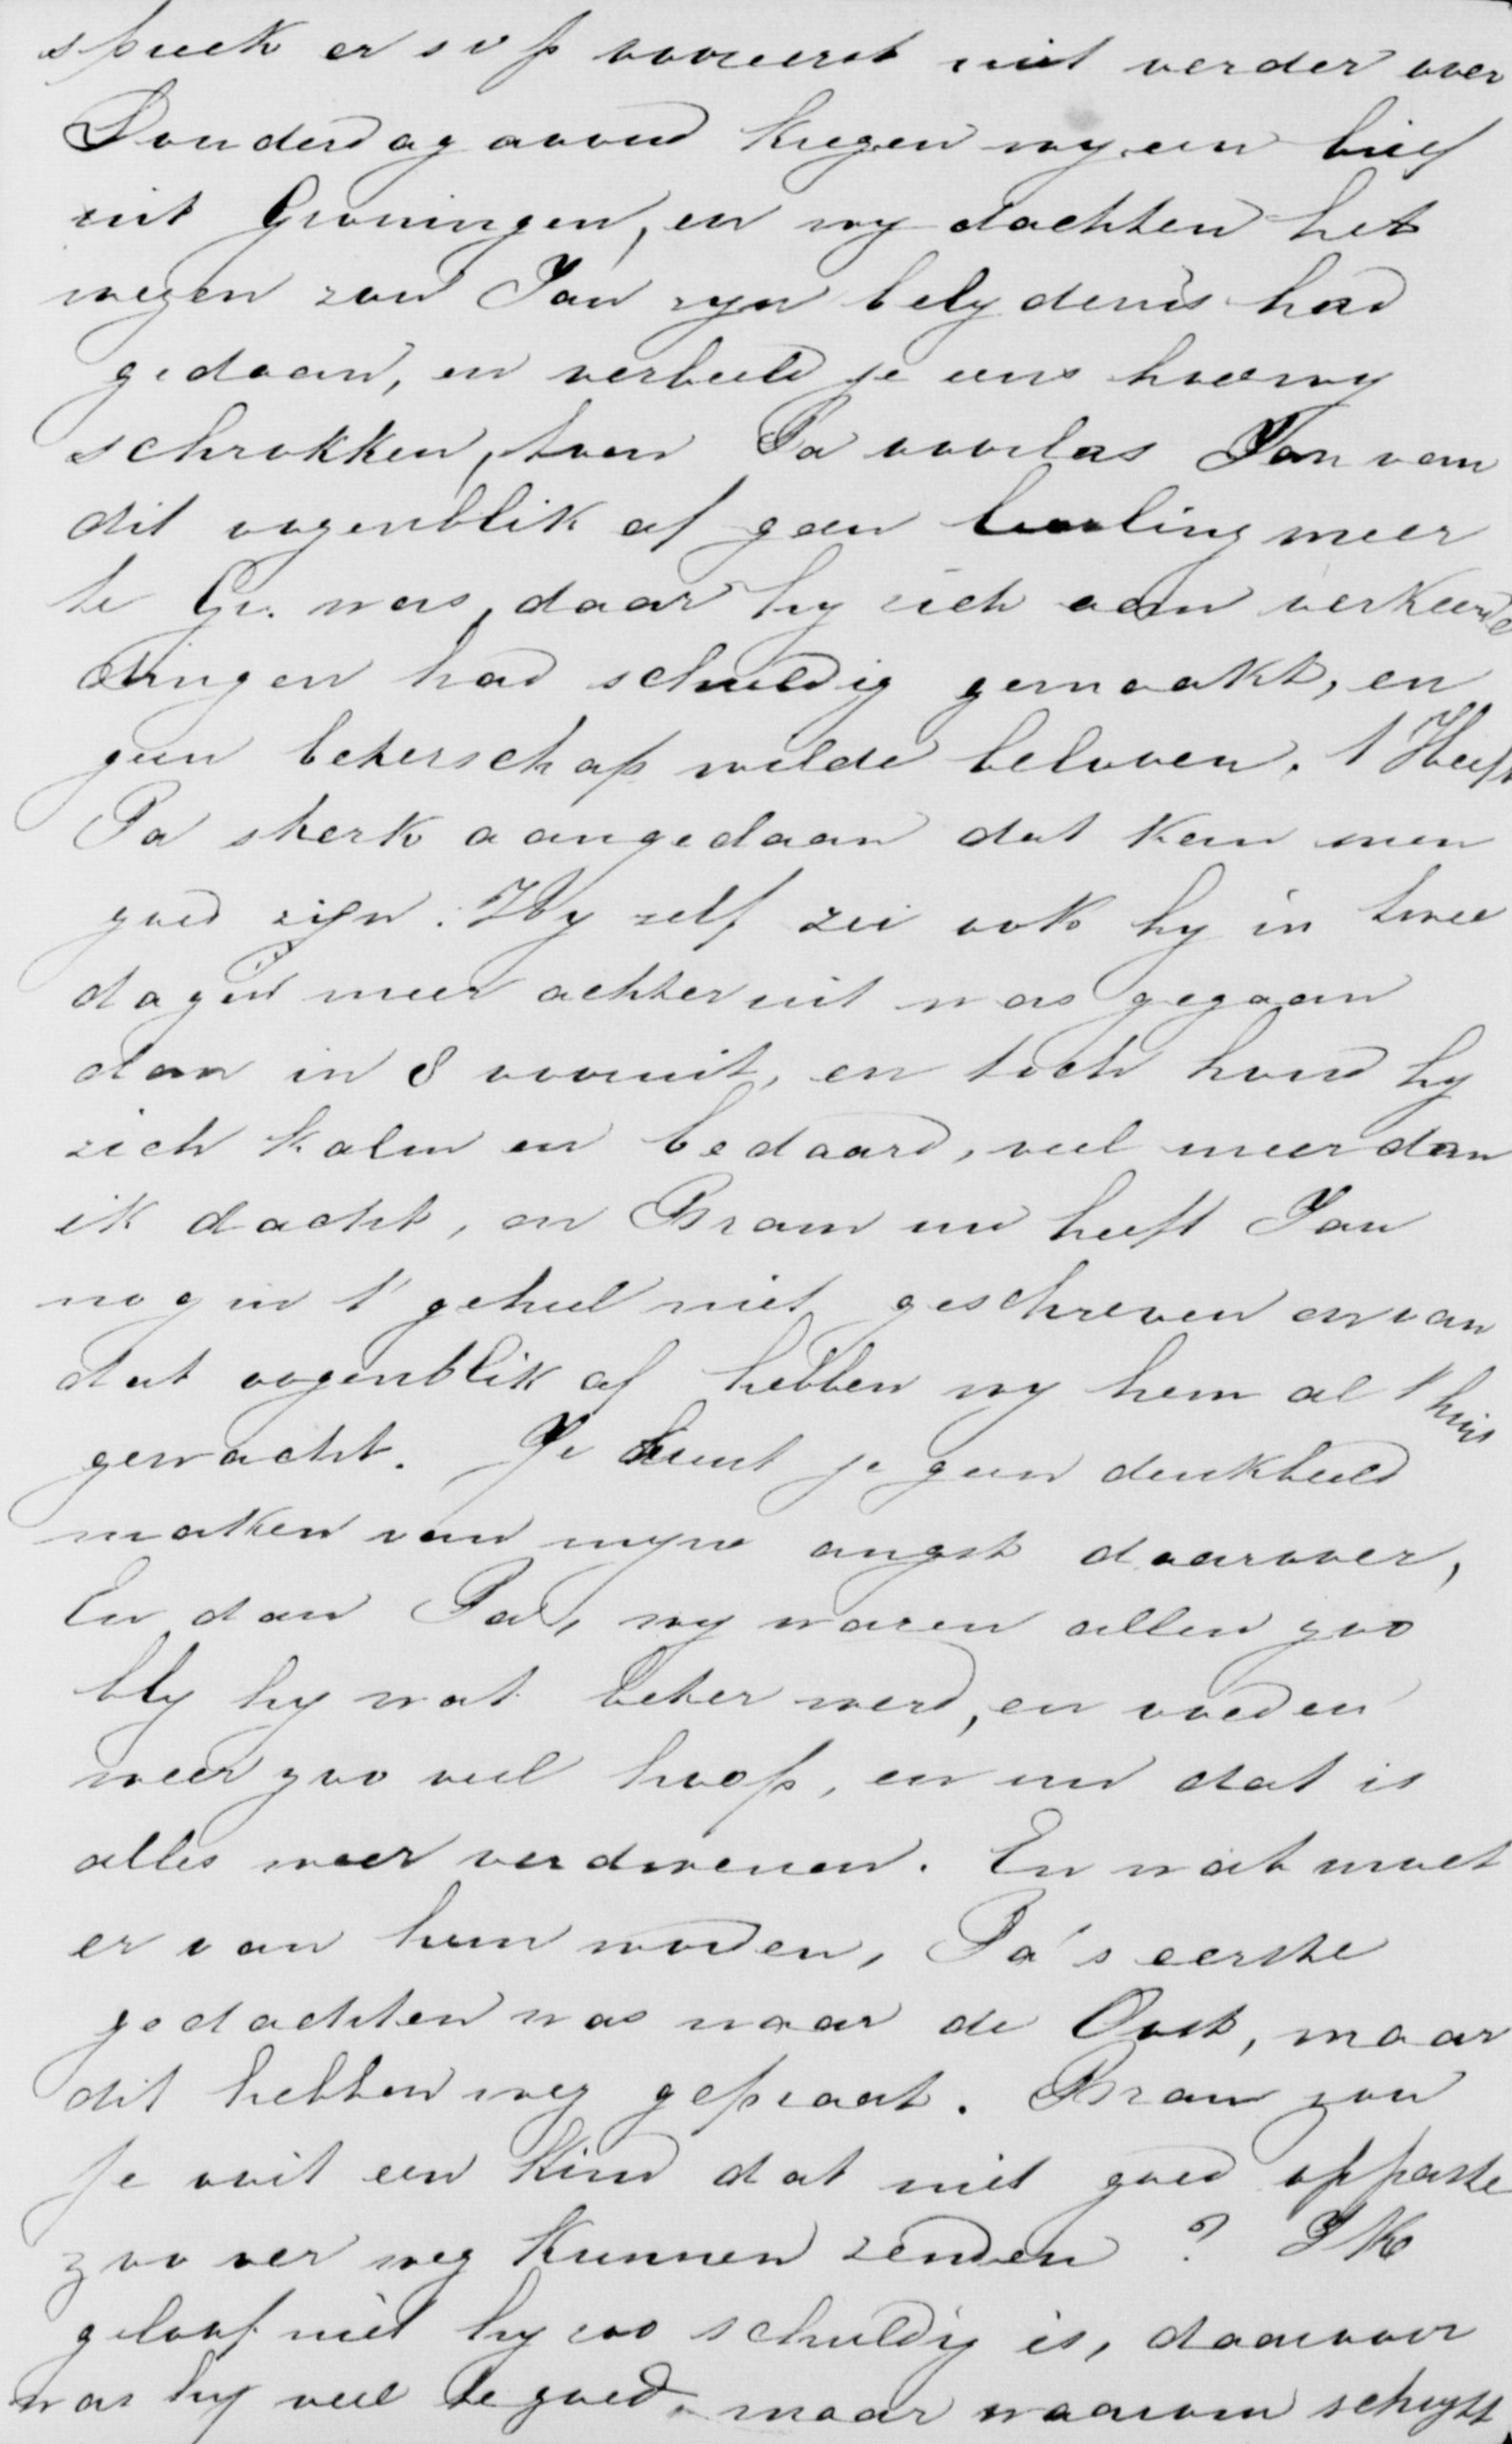 spreek er svp vooreerst niet verder over
Donderdag avond kregen wy een brief
uit Groningen, en wy dachten het
wezen zou Jan zyn belydenis had
gedaan, en verbeeld je eens hoe wy
schrokken, toen Pa voorlas Jan van
dit oogenblik af geen leerling meer
te Gr. was, daar hy zich aan verkeerde
dingen had schuldig gemaakt, en
geen beterschap wilde beloven. 't Heeft
Pa sterk aangedaan dat kan men
goed zijn. Hy zelf zei ook hy in twee
dagen meer achteruit was gegaan
dan in 8 vooruit, en toch houd hy
zich kalm en bedaard, veel meer dan
ik dacht, en Bram nu heeft Jan
nog in 't geheel niet geschreven en van
dat oogenblik af hebben wy hem al t'huis
gewacht. Je kunt je geen denkbeeld
maken van myne angst daarover,
En dan Pa, wy waren allen zoo
bly hy wat beter werd, en voeden
weer zoo veel hoop, en nu dat is
alles weer verdwenen. En wat moet
er van hem worden, Pa's eerste
gedachten was naar de Oost, maar
dit hebben weg gepraat. Bram zou
je ooit een kind dat niet goed oppaste
zoo ver weg kunnen zenden? Ik
geloof niet hy zoo schuldig is, daarvoor
was hy veel te goed, maar waarom schryft